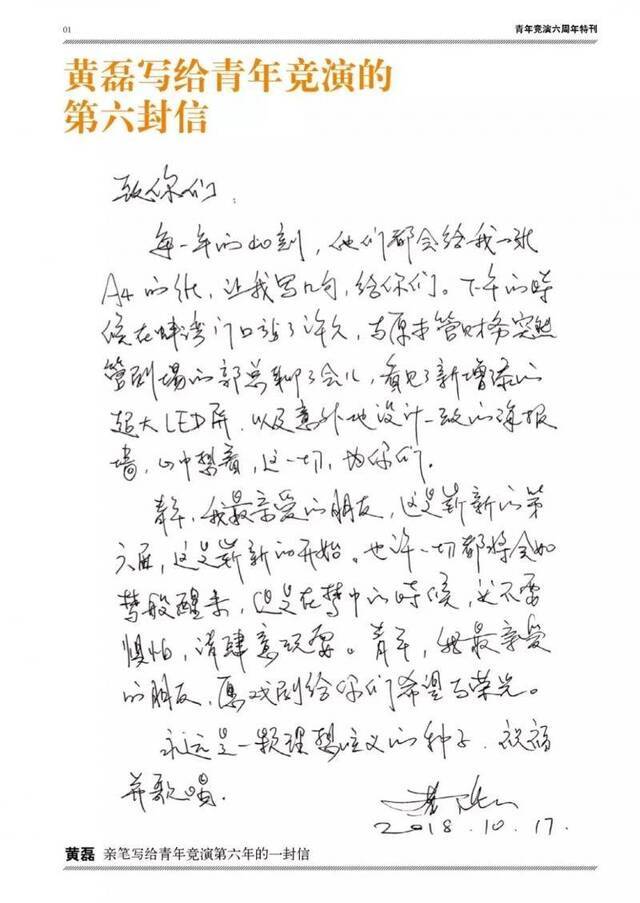 01
青年竞演六周年特刊
黄磊写给青年竞演的
第六封信
致你们:
每一年的此刻，他们都会给我一张
A4的纸，让我写几句，给你们。下午的时
候在蚌湾门口站了许久，与原本管财务突然
管剧场的郭总聊了会儿，看见了新增添的
超大LED屏，以及意外地设计一致的海报
墙，心中想着，这一切，为你们。
青年，我最亲爱的朋友，这是崭新的第
六届，这是崭新的开始。也许一切都将会如
梦般醒来，但是在梦中的时候，必不要
惧怕，请肆意玩耍。青年，我最亲爱
的朋友，愿戏剧给你们希望与荣光。
永远是一颗理想主义的种子，祝福
并歌唱。
黄磊
2018.10.17.
黄磊 亲笔写给青年竞演第六年的一封信